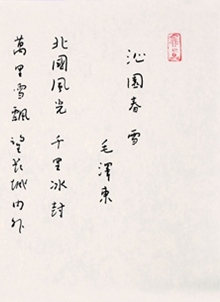 沁園春 雪
毛澤東
北國風光 千里冰封
萬里雪飄 望長城內外